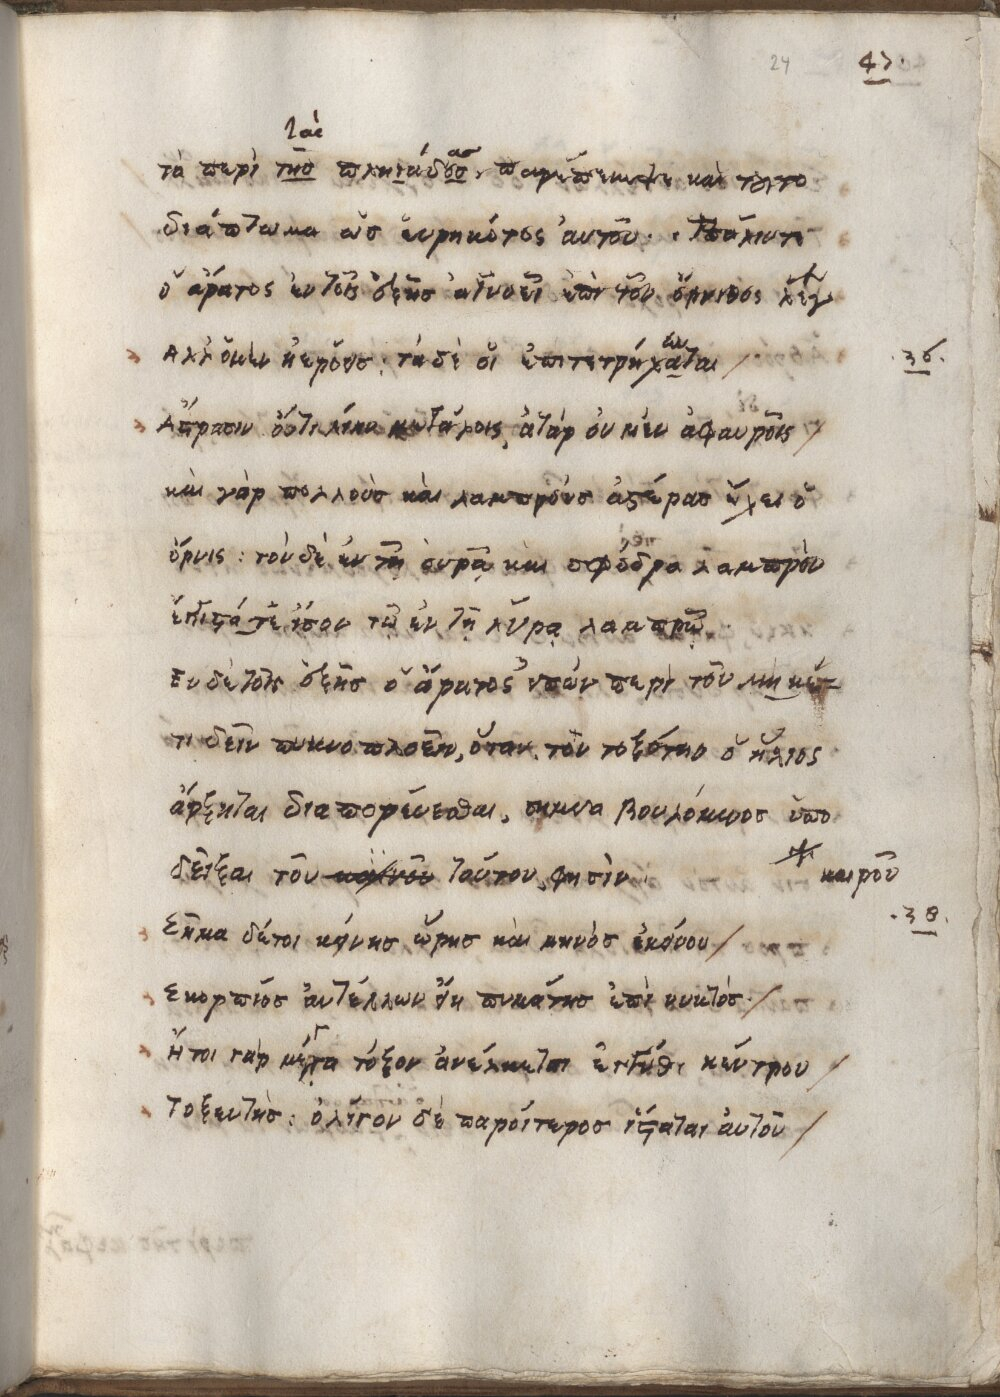 24 47.
τὰς
τὰ περὶ τῆσ πληϊάδοσ ασ, παρέπεμψε καὶ τοῦτο
διάπτωμα ὡσ εὑρηκότος αὐτοῦ. Πάλιν τε
ὁ ἄρατος ἐν τοῖς ἑξῆσ ἀγνοεῖ ἐπὶ τοῦ ὄρνιθος λέγ
Αλλ' ὁ μὲν ἠερόεισ· τὰ δέ οἱ ἐπιτετρήχαται .36.
Απτρασιν οὔτι λίην ἀτὰρ οὐ μὲν ἀφαυροῖς
καὶ γὰρ πολλοὺσ καὶ λαμπροὺσ ἀστέρασ ἔχει ὁ
ὄρνις: τὸν δὲ ἐν τῇ οὐρᾷ καὶ σφόδρα λαμπρὸν
ἔγγιστά τε ἴσον τῷ ἐν τῇ λύρᾳ λαμπρῷ.
Εν δὲ τοῖς ἑξῆσ ὁ ἄρατος εἰπὼν περὶ τοῦ μὴ κέ-
τι δεῖν νυκτοπλοεῖν, ὅταν τὸν τοξότην ὁ ἥλιος
ἄρξηται διαπορεύεσθαι, σημεῖα βουλόμενοσ ὑπο
δεῖξαι τοῦ τούτου φησὶν καιροῦ
.38.
Σῆμα δέ τοι κείνησ ὥρησ καὶ μηνὸσ ἐκείνου
Σκορπίοσ ἀντέλλων εἴη πυμάτησ ἐπὶ νυκτόσ.
Ητοι γὰρ μέγα τόξον ἀνέλκεται ἐγγύθι κέντρου
Τοξευτὴσ: ὀλίγον δὲ παροίτεροσ ἵσταται αὐτοῦ